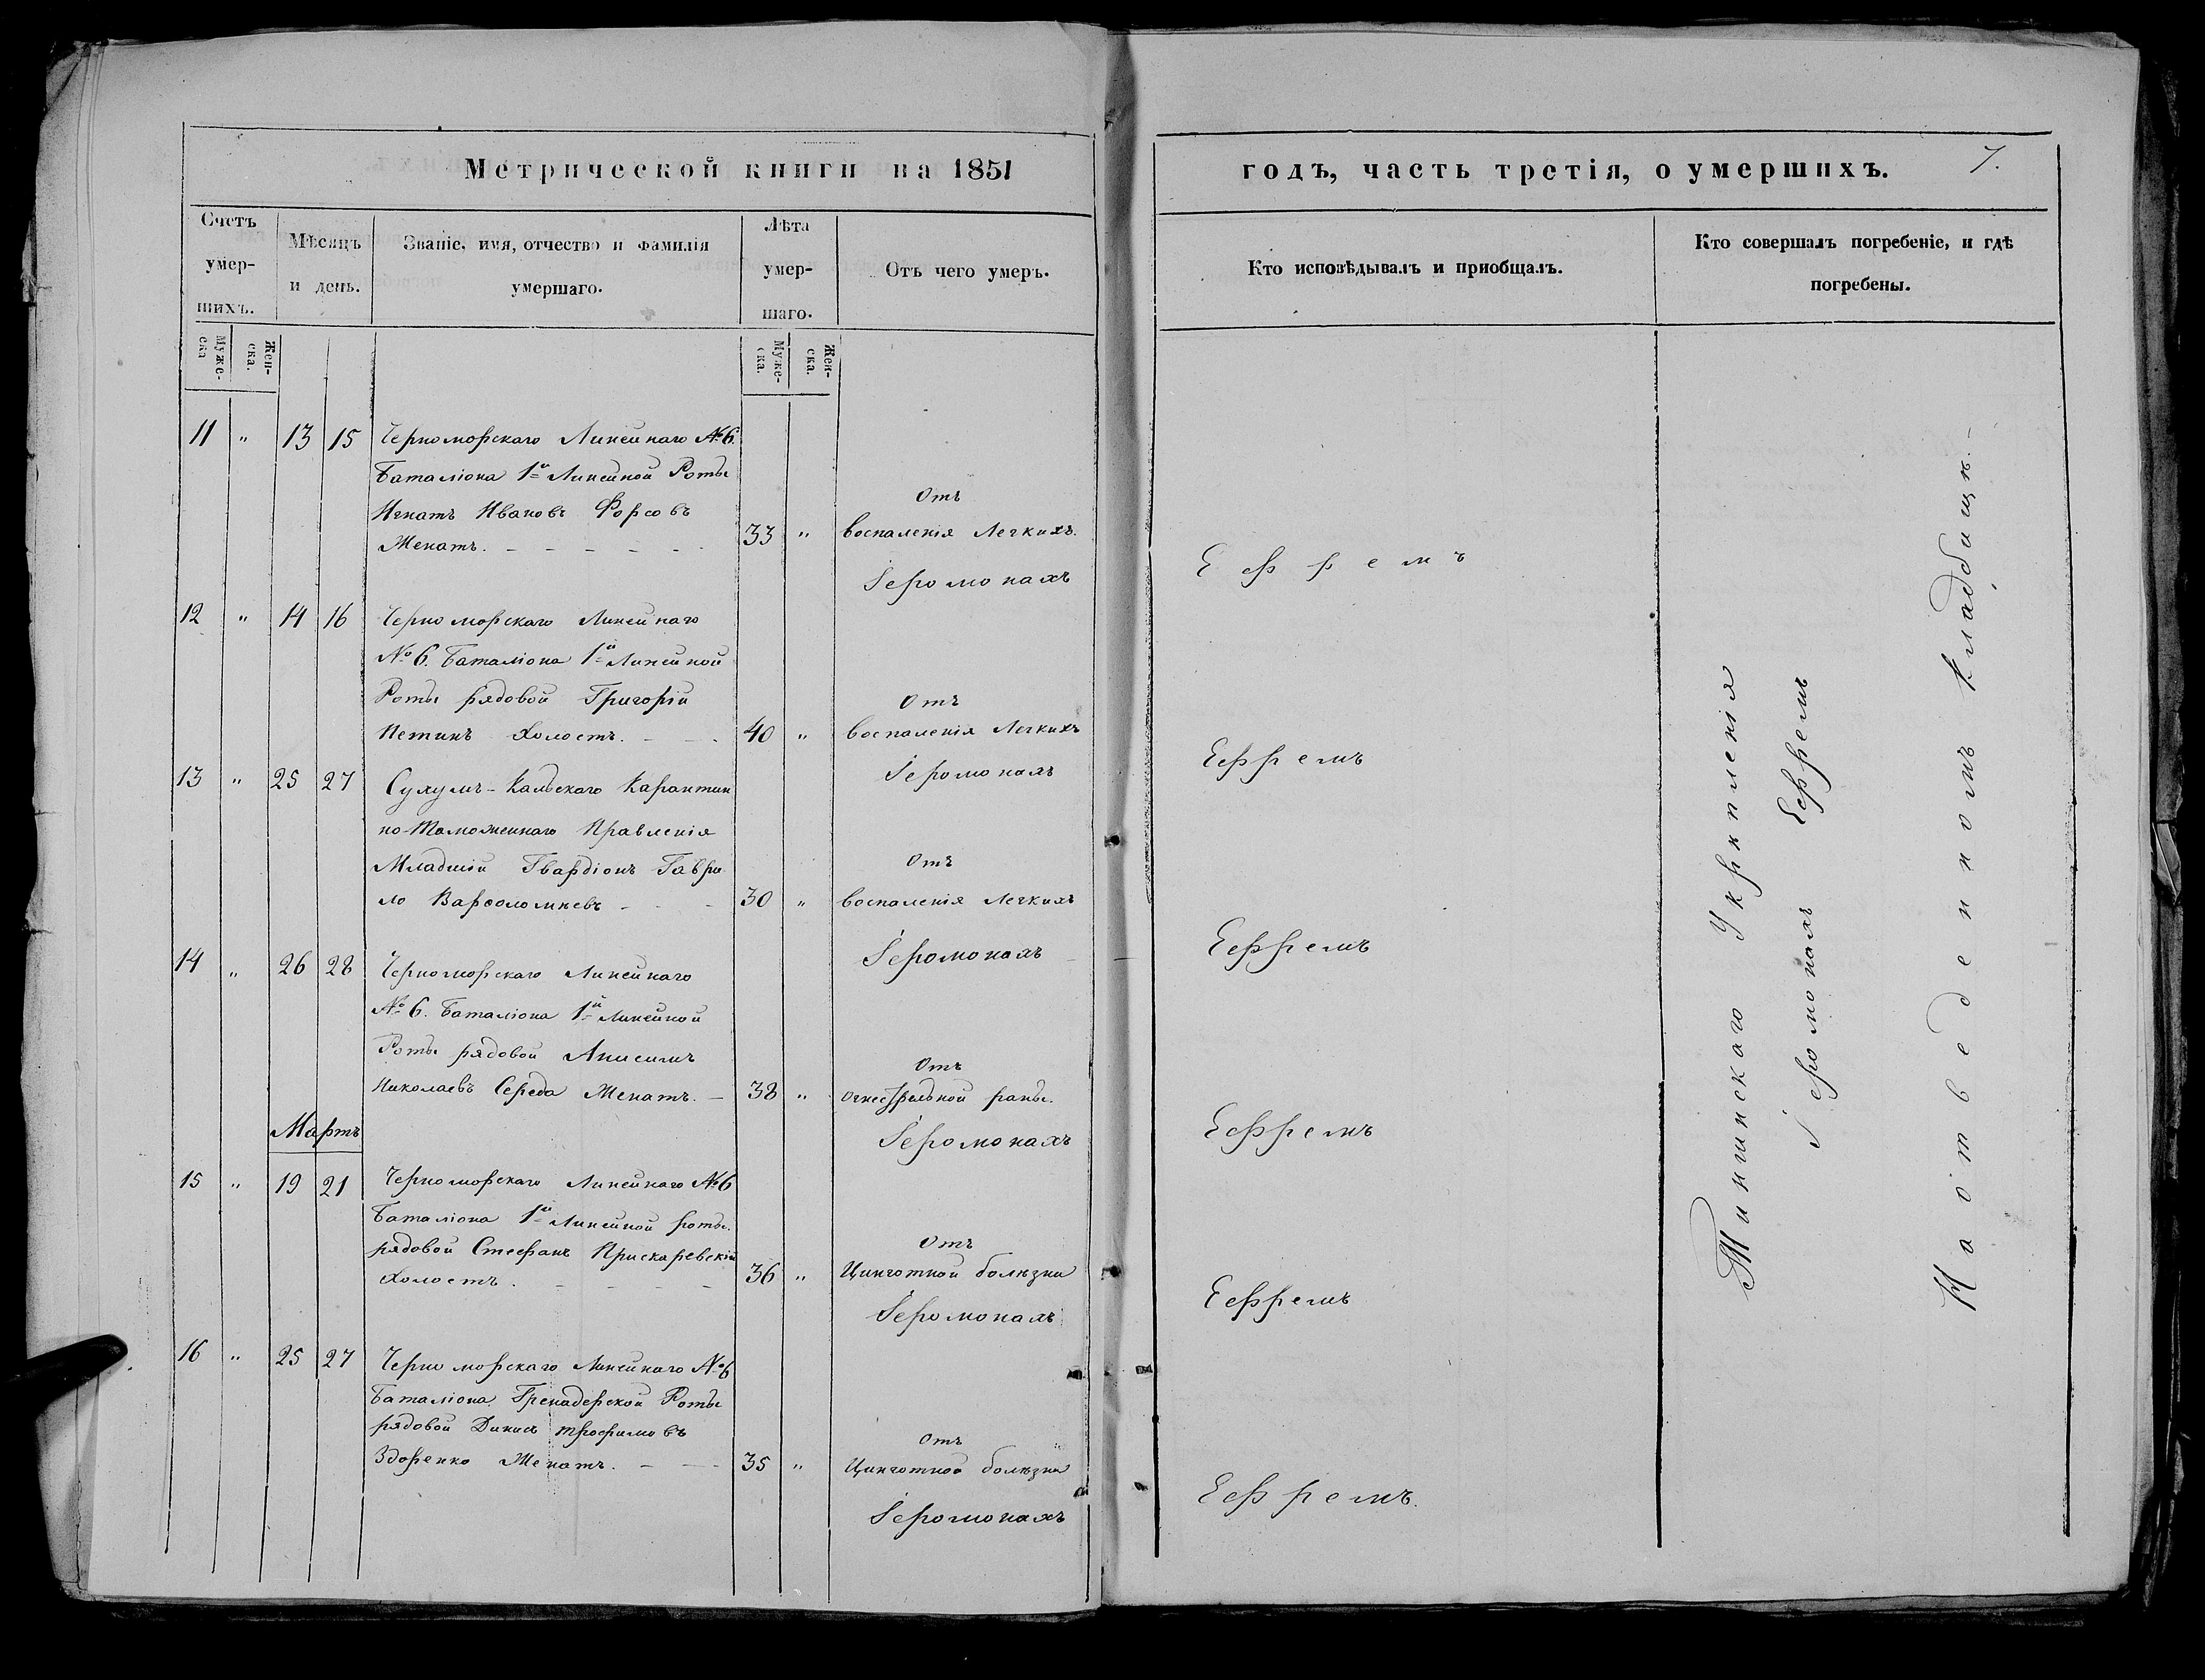 Метрической книги на 1851
годъ, часть третія, о умершихъ.
7.
Счетъ умер-
шихъ.
Мѣсяцъ
и день.
Званіе, имя, отчество и фамилія
умершаго.
Лѣта
умер-
шаго.
Отъ чего умеръ.
Кто исповѣдывалъ и приобщалъ.
Кто совершалъ погребеніе, и гдѣ
погребены.
Муже-
ска
Жен-
ска.
Муже-
ска.
Жен-
ска.
11 " 13 15 Черноморскаго Линейнаго №6.
Баталіона 1й Линейной Роты
Игнатъ Ивановъ Форсовъ
Женатъ.
33 "
Отъ
воспаленія Легкихъ.
Іеромонахъ Ефремъ
12 " 14 16 Черноморскаго Линейнаго
№ 6. Баталіона 1й Линейной
Роты рядовой Григорій
Петинъ Холостъ.
40 "
Отъ
воспаленія Легкихъ
Іеромонахъ Ефремъ
13 " 25 27 Сухумъ-Кальскаго Карантин
но-Таможеннаго Правленія
Младшій Гвардіонъ Гаври
ло Варѳоломѣевъ
30 "
Отъ
воспаленія Легкихъ
Іеромонахъ Ефремъ
14 " 26 28 Черноморскаго Линейнаго
№ 6. Баталіона 1й Линейной
Роты рядовой Анисимъ
Николаевъ Середа Женатъ.
38 "
Отъ
огнестрѣльной раны.
Іеромонахъ Ефремъ
Мартъ
15 " 19 21 Черноморскаго Линейнаго №6
Баталіона 1й Линейной роты.
рядовой Стефанъ Прискаревскій
Холостъ.
36 "
Отъ
Цынготной болѣзни
Іеромонахъ Ефремъ
16 " 25 27 Черноморскаго Линейнаго №6
Баталіона Гренадерской Роты
рядовой Дикис трофимовъ
Здоренко Женатъ.
35 "
Отъ
Цынготной болѣзни
Іеромонахъ Ефремъ.
Укрѣпленія
Іеромонахъ Ефремъ
На отведенномъ кладбищѣ.